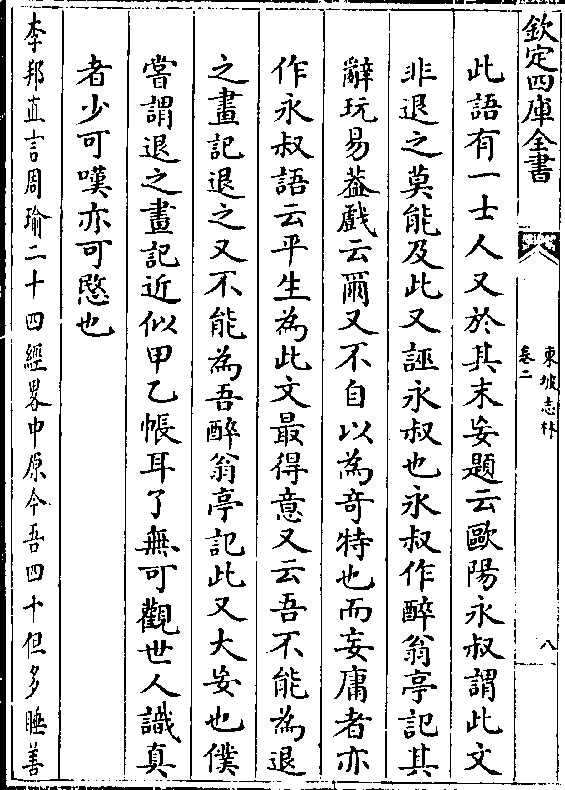 欽定四庫全書
東坡志林
卷二
八
此語有一士人又於其末妄題云歐陽永叔謂此文
非退之莫能及此又誣永叔也永叔作醉翁亭記其
辭玩易葢戲云爾又不自以為奇特也而妄庸者亦
作永叔語云平生為此文最得意又云吾不能為退
之畫記退之又不能為吾醉翁亭記此又大妄也僕
嘗謂退之畫記近似甲乙帳耳了無可觀世人識真
者少可嘆亦可愍也
李邦直言周瑜二十四經畧中原今吾四十但多睡善